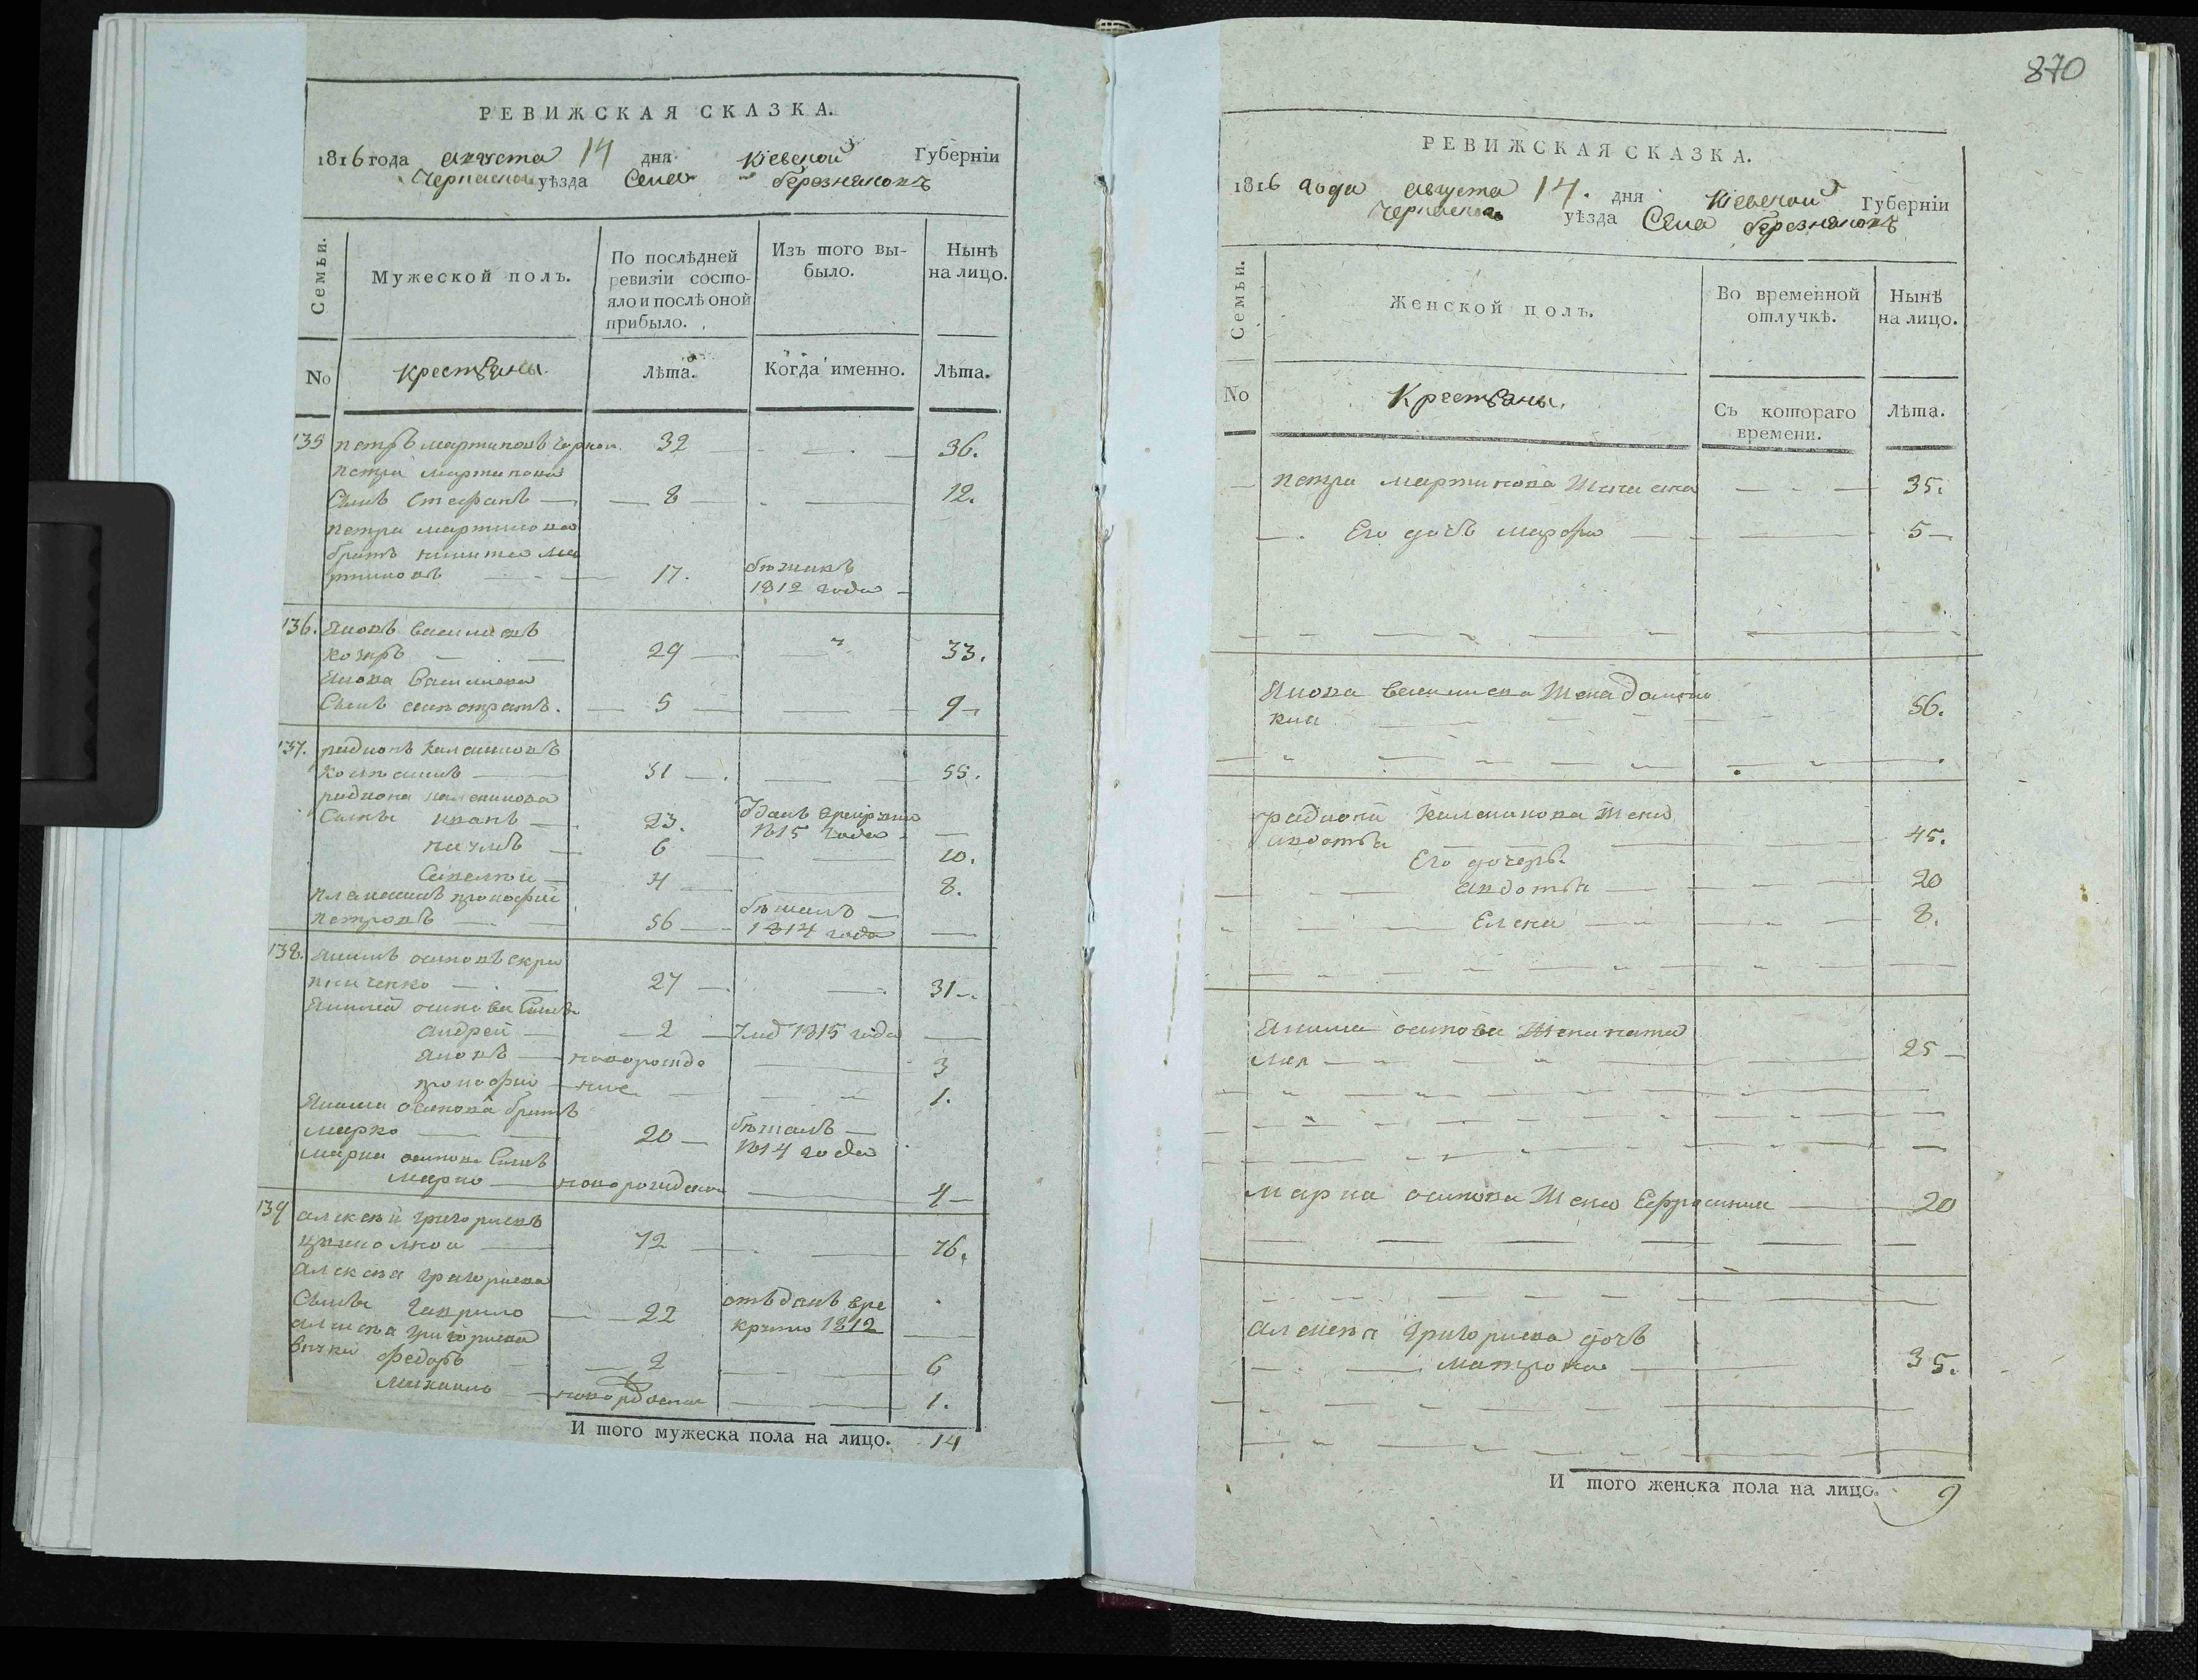 РЕВИЖСКАЯ СКАЗКА.
1816 года августа 14 дня Кіевской Губерніи
Черкаской уѣзда Села березняковъ
Семьи.
Мужеской полъ.
По послѣдней
ревизіи состо-
яло и послѣ оной
прибыло.
Изъ того вы-
было.
Нынѣ
на лицо.
No
крестьяны.
Лѣта.
Когда именно.
Лѣта.
135 петръ мартиновъ 32 36.
петра мартинова
Сынъ Стефанъ 8 12.
петра мартинова
братъ никита ма
ртиновъ 17. бежавъ
1812 года
136. Яковъ василиевъ
козыръ 29 33.
Якова Василиева
Сынъ 5 9
137. радионъ калениковъ
51 55.
радиона каленикова
Сыны иванъ 23. 1815 года
павелъ 6 10.
Савелий 4 8.
племяникъ прокофий
петровъ 56 бежалъ
1814 года
138. Якимъ осиповъ скри
пниченко 27 31
Якима осипова Сынъ
андрей 2 1815 года
яковъ новорожде 3
прокофий ние 1.
Якима осипова братъ
марко 20 бежалъ
1814 года
марка осипова Сынъ
марко новорожденой 4
139 алексей григориевъ
72 76.
алексея григориева
Сынъ гаврило 22 отъданъ вре
круты 1812
алексея григориева
внуки федоръ 2 6
михаило 1.
И того мужеска пола на лицо. 14
870
РЕВИЖСКАЯ СКАЗКА.
1816 года августа 14. дня Кіевской Губерніи
Черкаского уѣзда Села березняковъ
Семьи.
Женской полъ.
Во временной
отлучкѣ.
Нынѣ
на лицо.
No
Крестьяны.
Съ котораго
времени.
Лѣта.
петра мартинова Жена 35.
Его дочь марфа 5
Якова василиева Жена домни
кия 56.
радиона каленикова Жена
авдотья 45.
Его дочеры
авдотья 20
Елена 8.
Якима осипова Жена ната
лия 25
марка осипова Жена Ефросиния 20
алексея григориева дочь
матрона 35.
И того женска пола на лицо. 9